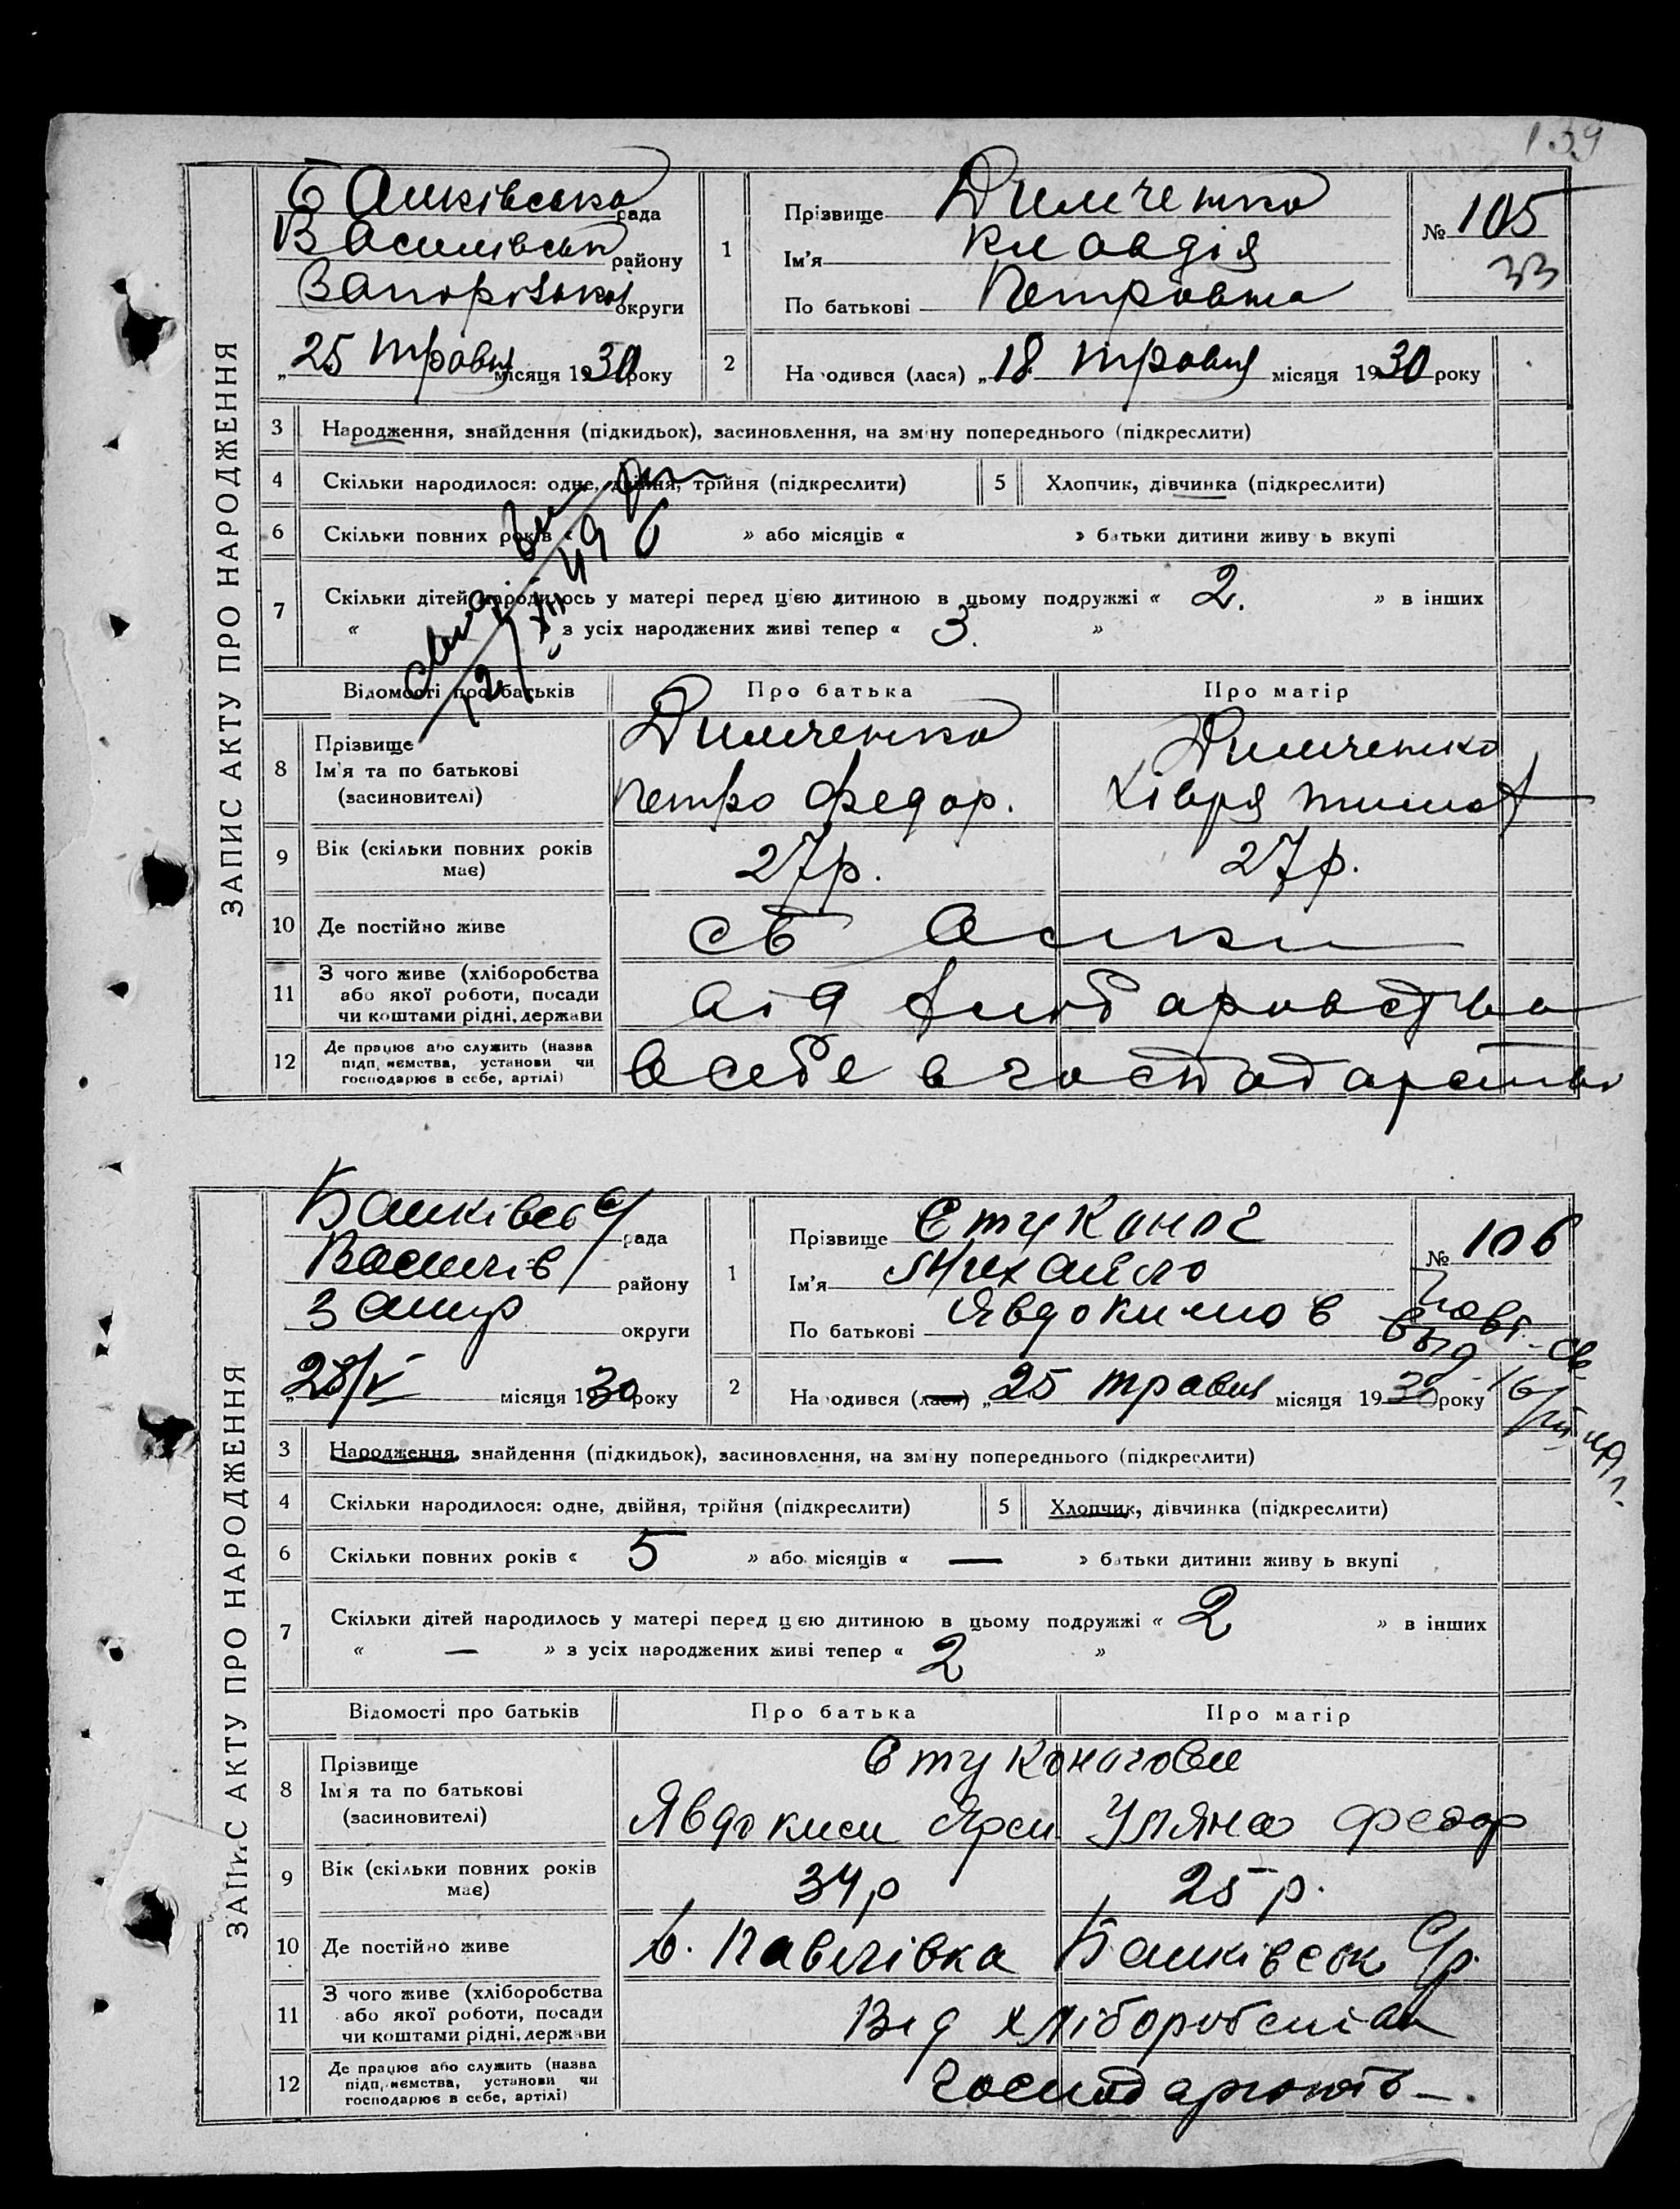 139
ЗАПИС АКТУ ПРО НАРОДЖЕННЯ
Б Ашківська рада
Василівськ району
Запорізької округи
„25 травня місяця 1930 року
1
Прізвище Димченко
Ім'я Клавдія
По батькові Петровна
№ 105
33
2
Народився (лася) „18 травня місяця 1930 року
3 Народження, знайдення (підкидьок), засиновлення, на зміну попереднього (підкреслити)
4 Скільки народилося: одне, двійня, трійня (підкреслити)
5 Хлопчик, дівчинка (підкреслити)
6 Скільки повних років « » або місяців « » батьки дитини живуть вкупі
7 Скільки дітей народилось у матері перед цією дитиною в цьому подружжі « 2. » в інших
« з усіх народжених живі тепер « 3. »
12/XII 49
Відомості про батьків
Про батька
Про матір
8 Прізвище
Ім'я та по батькові
(засиновителі)
Димченко
Петро Федор.
Димченко
Хівря Тимоф
9 Вік (скільки повних років має)
27р.
27р.
10 Де постійно живе
11 З чого живе (хліборобства
або якої роботи, посади
чи коштами рідні, держави
від хліборобства
12 Де працює або служить (назва
підприємства, установи чи
господарює в себе, артілі)
в себе в господарстві
ЗАПИС АКТУ ПРО НАРОДЖЕННЯ
Башківсь с/ рада
Василів району
Запор округи
„28/V місяця 1930 року
1
Прізвище Стуконог
Ім'я Михайло
По батькові Явдокимов
№ 106
повт.
выд. св.
16/ 49 г.
2
Народився (лася) „25 травня місяця 1930 року
3 Народження, знайдення (підкидьок), засиновлення, на зміну попереднього (підкреслити)
4 Скільки народилося: одне, двійня, трійня (підкреслити)
5 Хлопчик, дівчинка (підкреслити)
6 Скільки повних років « 5 » або місяців « — » батьки дитини живуть вкупі
7 Скільки дітей народилось у матері перед цією дитиною в цьому подружжі « 2 » в інших
« — » з усіх народжених живі тепер « 2 »
Відомості про батьків
Про батька
Про матір
8 Прізвище
Ім'я та по батькові
(засиновителі)
Стуконогови
Явдоким
Уляна Федор
9 Вік (скільки повних років має)
34р
25р.
10 Де постійно живе
Павлівка Башківськ С/р.
11 З чого живе (хліборобства
або якої роботи, посади
чи коштами рідні, держави
Від хліборобства
12 Де працює або служить (назва
підприємства, установи чи
господарює в себе, артілі)
господарюють —.